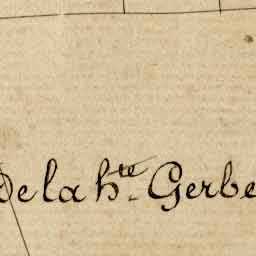 De la hte Gerbe